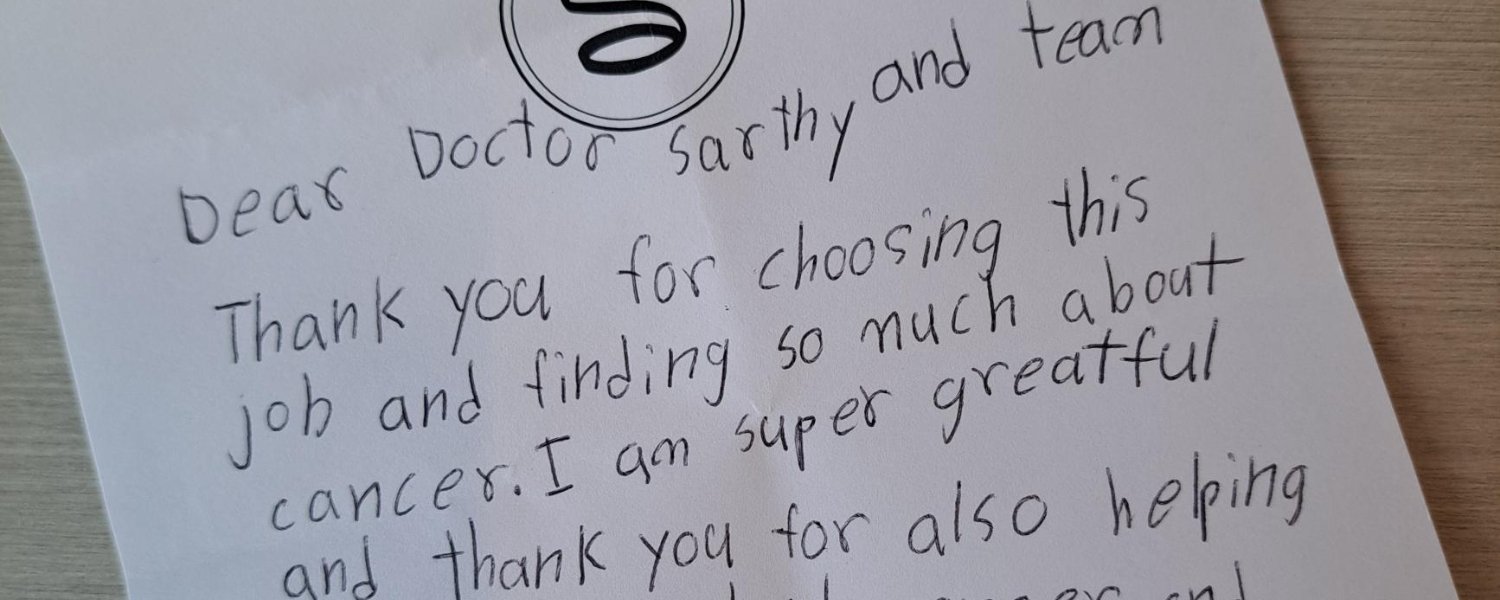 Dear Doctor Sarthy and team
Thank you for choosing this
job and finding so much about
cancer. I am super greatful
and thank you for also helping